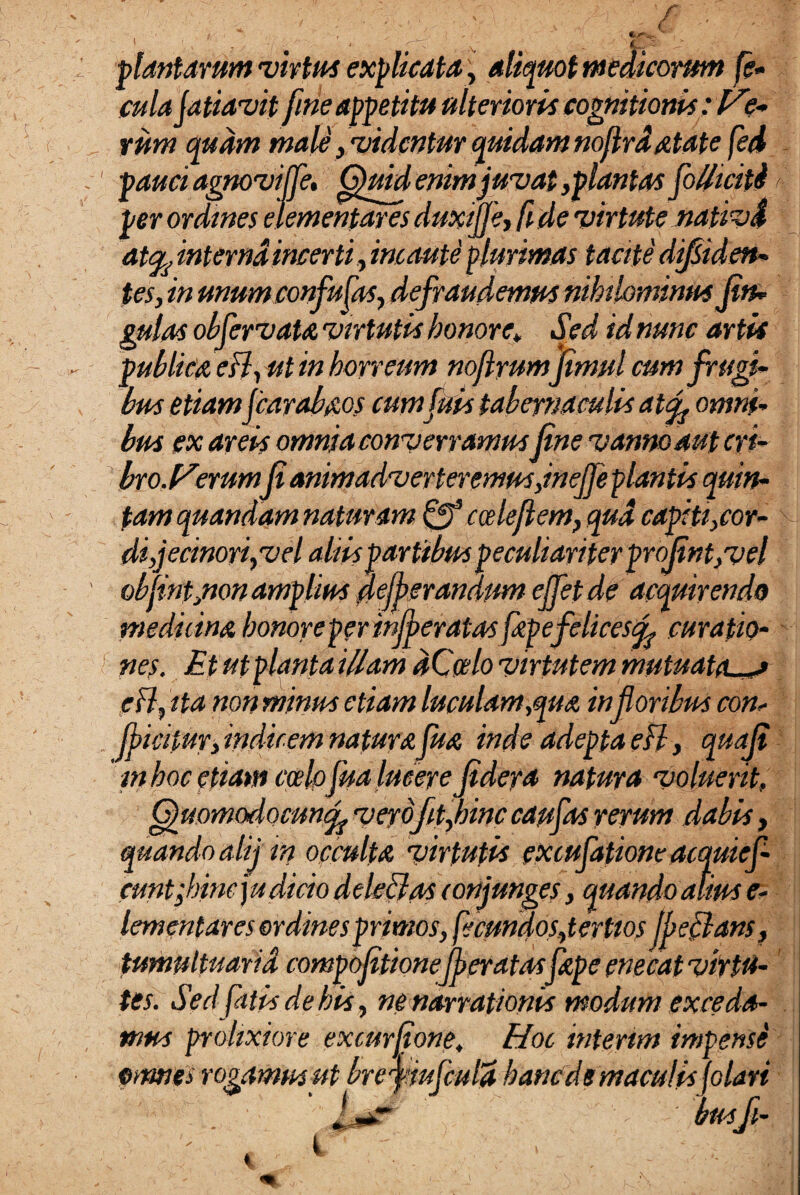 plantarum virtus explicata, aliquot medicorum ſe-
cula ſatiavit ſine appetitu ulterioris cognitionis: Ve-
rùm quàm malè, videntur quidam noſtrâ ætate ſed
pauci agnoviſſe. Quid enim juvat, plantas ſolliciti
per ordines elementares duxiſſe, ſi de virtute nativâ
atq́; internâ incerti, incautè plurimas tacitè diſsiden-
tes, in unum confuſas, defraudemus nihilominus ſin-
gulas obſervatæ virtutis honore. Sed id nunc artis
publicæ eſt, ut in horreum noſtrum ſimul cum frugi-
bus etiam ſcarabæos cum ſuis tabernaculis atq́; omni-
bus ex areis omnia converramus ſine vanno aut cri-
bro. Verum ſi animadverteremus, ineſſe plantis quin-
tam quandam naturam & cœleſtem, quâ capiti, cor-
di, jecinori, vel aliis partibus peculiariter proſint, vel
obſint, non amplius deſperandum eſſet de acquirendo
medicinæ honore per inſperatas ſæpe felicesq́; curatio-
nes. Et ut planta illam à Cœlo virtutem mutuata
eſt, ita non minus etiam luculam, quæ in floribus con-
ſpicitur, indicem naturæ ſuæ inde adepta eſt, quaſi
in hoc etiam cœlo ſua lucere ſidera natura voluerit.
Quomodocunq́; verò ſit, hinc cauſas rerum dabis,
quando alij in occultæ virtutis excuſatione acquieſ-
cunt; hinc judicio delectas conjunges, quando alius e-
lementares ordines primos, ſecundos, tertios ſpectans,
tumultuariâ compoſitione ſperatas ſæpe enecat virtu-
tes. Sed ſatis de his, ne narrationis modum exceda-
mus prolixiore excurſione. Hoc interim impensè
omnes rogamus ut hanc de maculis ſolari
bus ſi-